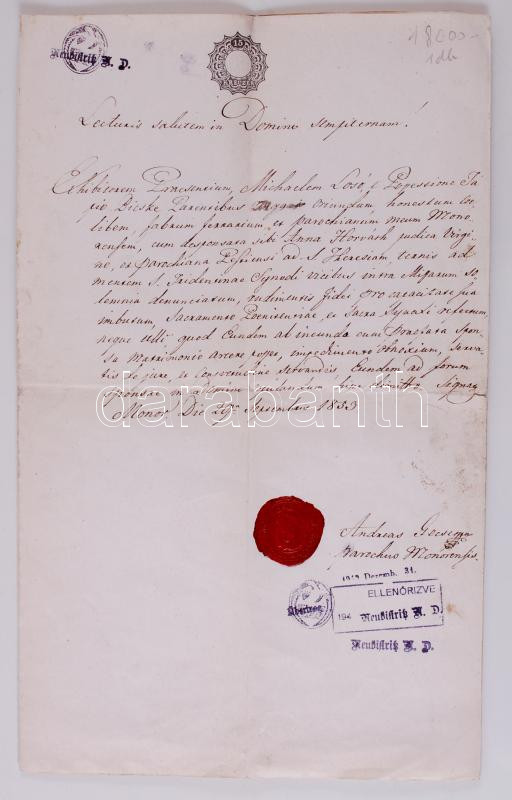 18000.-
1db
Neubistritz N. D.
15
Lecturis salutem in Domino sempiternam!
Exhibitorem Praesentium, Michaelem Losó, e Possessione Tá
pio Bicske Parentibus oriundum honestum Coe
libem, fabrum ferrarium, et parochianum meum Mono
rensem, cum desponsata sibi Anna Horváth pudica Virgi
ne, ex Parochiana Pestiensi ad S. Theresiam, ternis ad
mentem S. Tridentinae Synodi vicibus intra Missarum so
lemnia denunciatum, rudimentis fidei pro capacitate sua
imbutum, Sacramento Poenitentiae, et Sacra Synaxi refectum,
neque ulli, quod Eundem ab ineunda cum praefata Spon
sa Matrimonio arcere posset, impedimento obnoxium, serva
tis de jure et consuetudine servandis Eundem ad forum
Sponsae in ordine Copulandum hisce dimitto. Signatum
Monor Die 29a Septembris 1853
darabanth
Andreas
Parochus Monorensis.
Decemb. 31.
ELLENŐRIZVE
Übertrag
194 Neubistritz N. D.
Neubistritz N. D.